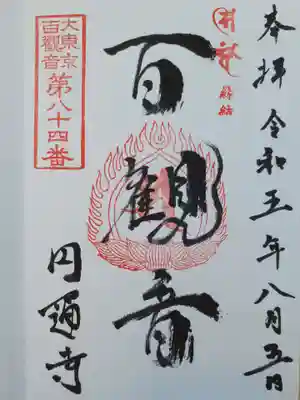 奉拝 令和五年八月五日
百観音
大東京
百観音
第八十四番
円通寺